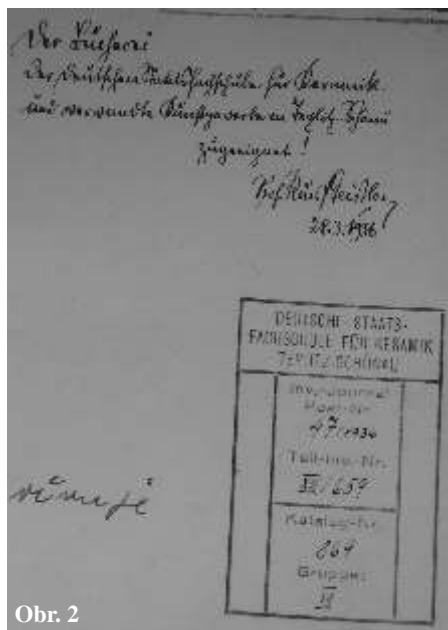 Der Bücherei
der Deutschen Staatsfachschule für Keramik
und verwandte Kunstgewerbe in Teplitz-Schönau
zugeeignet!
28.3.1936
DEUTSCHE STAATS-
FACHSCHULE FÜR KERAMIK
TEPLITZ-SCHÖNAU
Inv.-Journal
Post-Nr.
47/1936
Teil-Inv.-Nr.
III/659
Katalog-Nr.
869
Gruppe:
II
Obr. 2